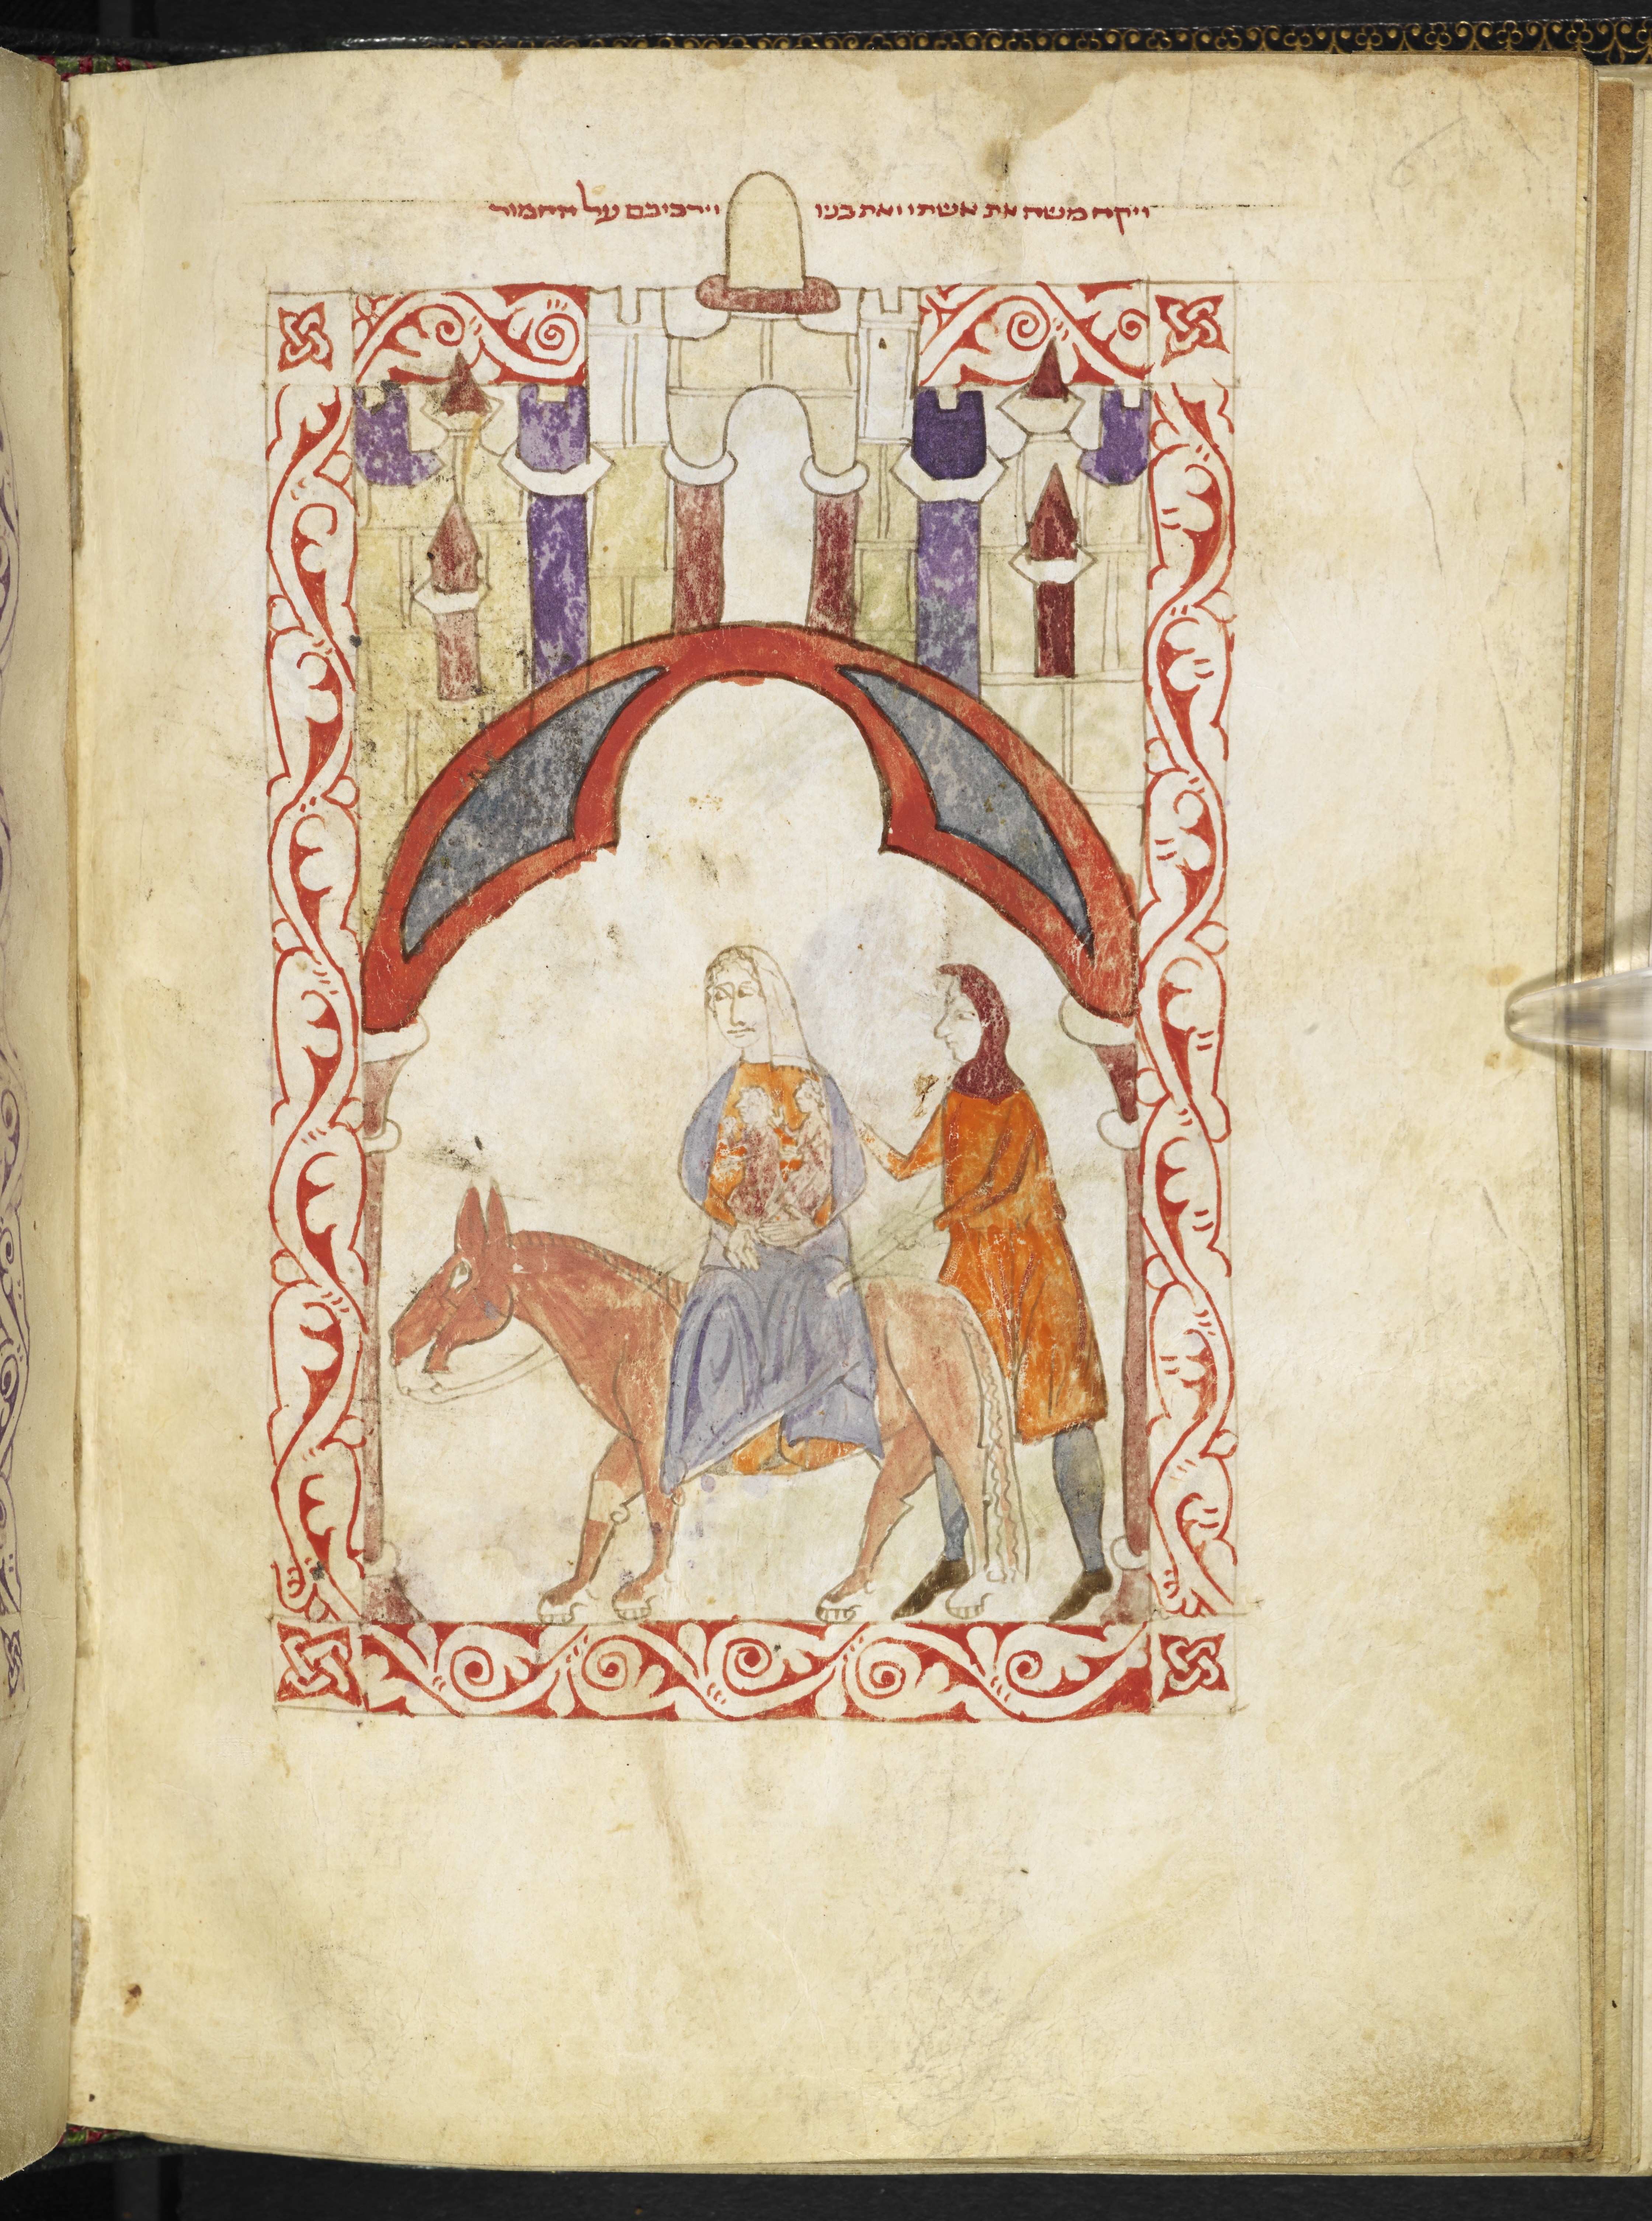 ויקח משה את אשתו ואת בניו וירכיבם על החמור